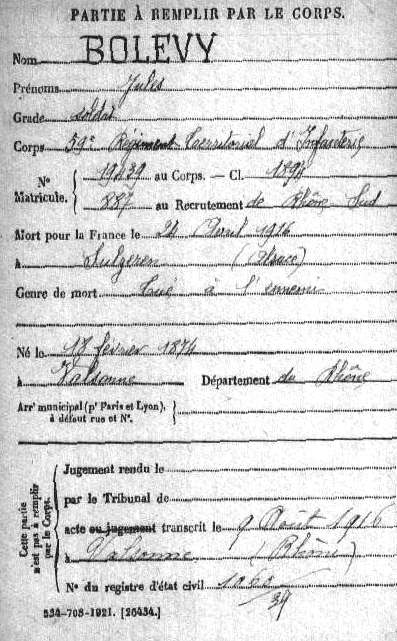 PARTIE À REMPLIR PAR LE CORPS.
Nom BOLEVY
Prénoms Jules
Grade soldat
Corps 59e Régiment Territorial d'Infanterie
No Matricule. 19439 au Corps. — Cl. 1894
887 au Recrutement de Rhône Sud
Mort pour la France le 24 Avril 1916
à Sulzeren (Alsace)
Genre de mort Tué à l'ennemi
Né le 17 février 1874
à Valsonne Département du Rhône
Arrt municipal (pr Paris et Lyon), à défaut rue et No.
Cette partie n'est pas à remplir par le Corps.
Jugement rendu le
par le Tribunal de
acte ou jugement transcrit le 9 Août 1916
à Valsonne (Rhône)
No du registre d'état civil 1060/39
534-708-1921. [26434.]